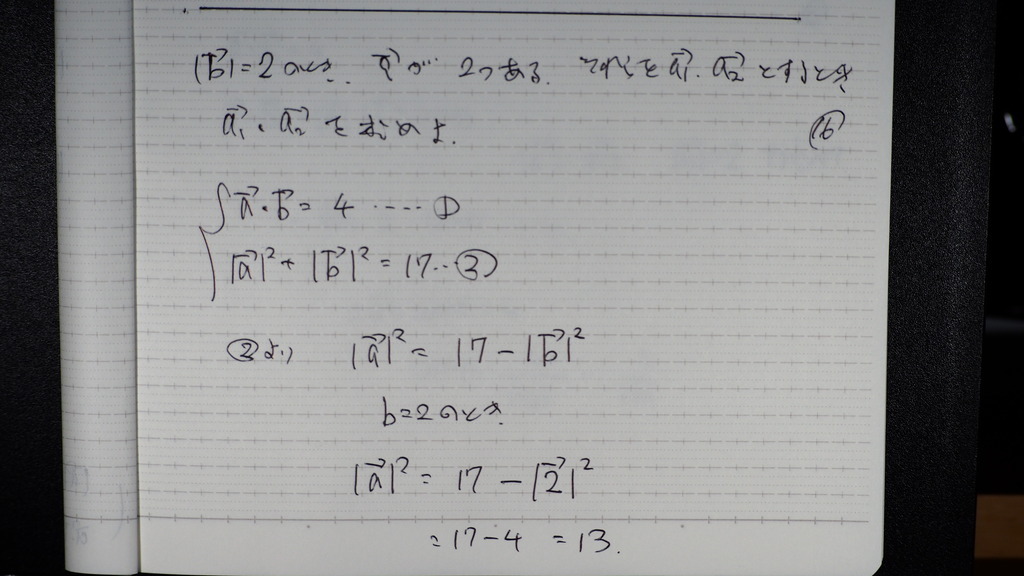 |b⃗|=2のとき. a⃗が 2つある. それをa₁⃗. a₂⃗とするとき
a₁⃗・a₂⃗を求めよ. ⑥
a⃗・b⃗=4 ‥‥①
|a⃗|²+|b⃗|²=17‥②
②より |a⃗|²=17-|b⃗|²
b=2のとき.
|a⃗|²=17-|2⃗|²
=17-4 =13.